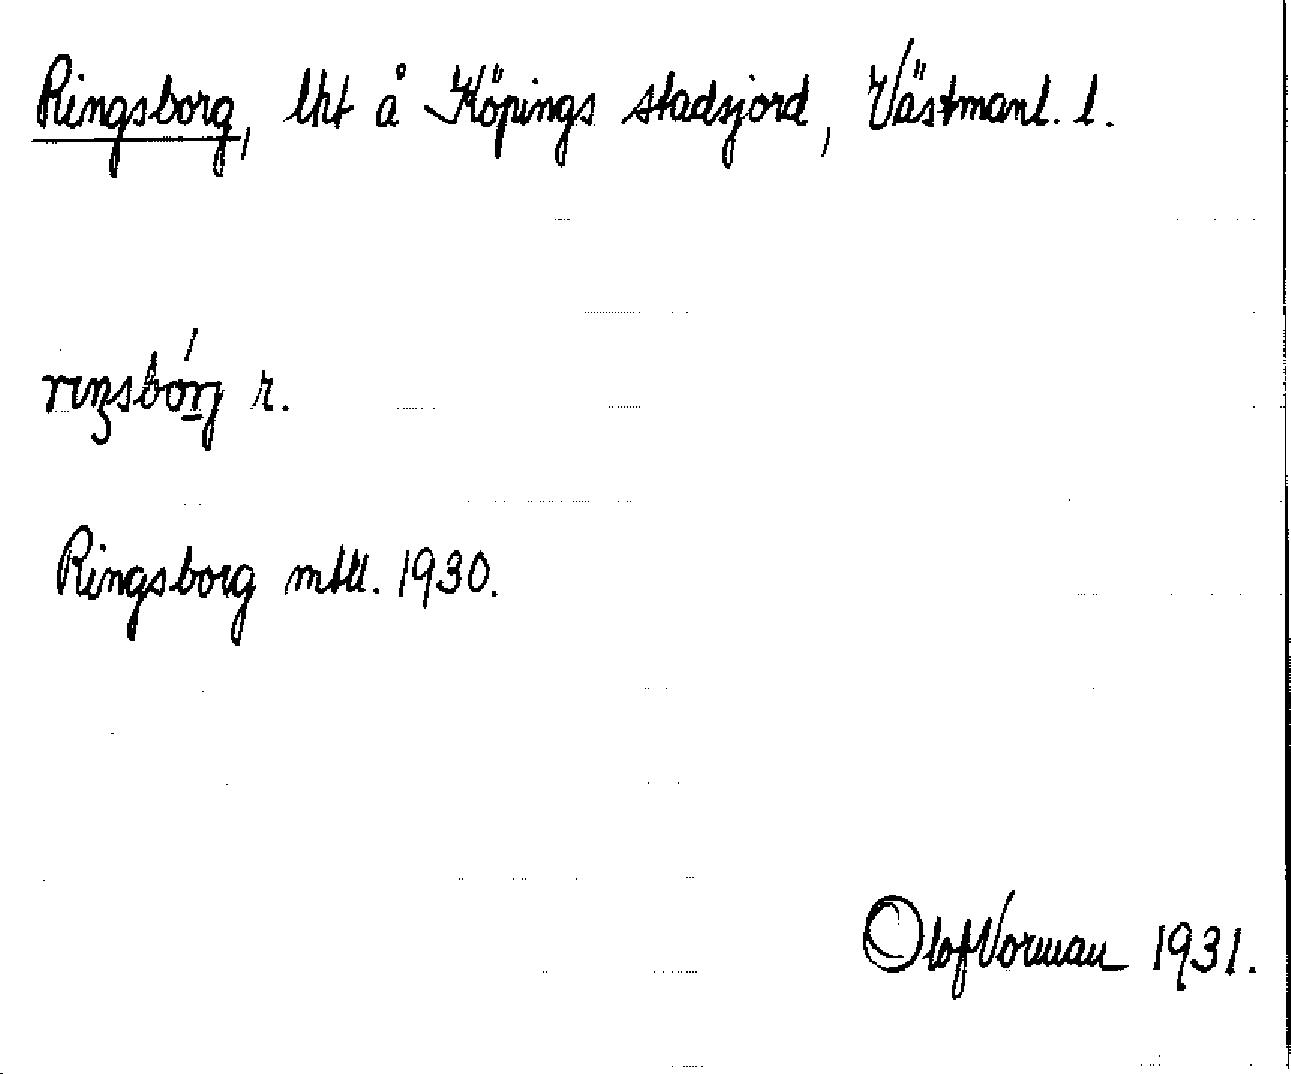 Ringsborg, lht å Köpings stadsjord, Västmanl. l.
rıŋsbórj r.
Ringsborg mtll. 1930.
Olof Vorman 1931.